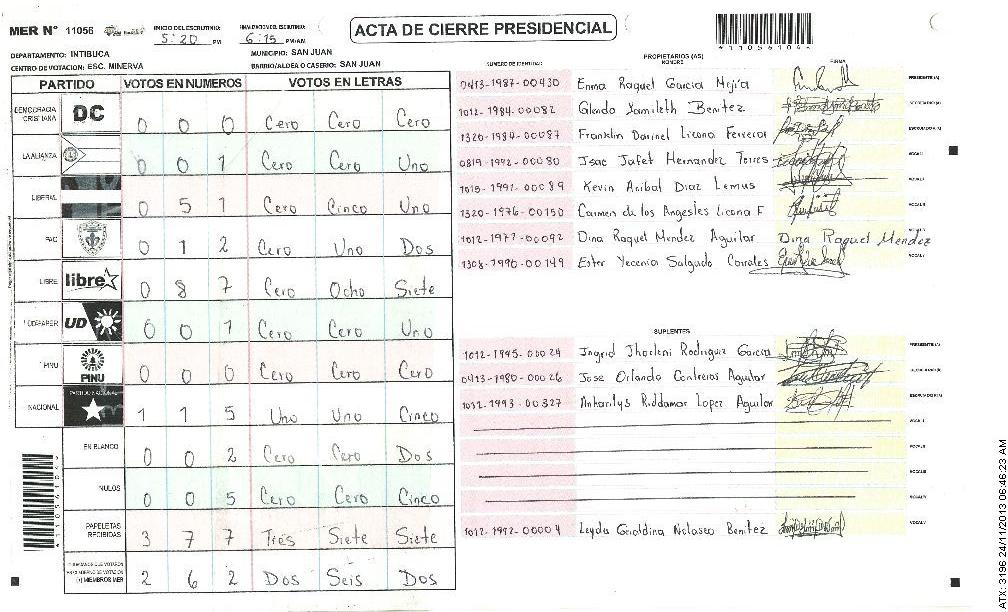 MER N° 11056
INICIO DEL ESCRUTINIO: 5:20 PM
FINALIZACION DEL ESCRUTINIO: 6:15 PM/AM
ACTA DE CIERRE PRESIDENCIAL
*11056104*
DEPARTAMENTO: INTIBUCA
MUNICIPIO: SAN JUAN
CENTRO DE VOTACION: ESC. MINERVA
BARRIO/ALDEA O CASERIO: SAN JUAN
PARTIDO VOTOS EN NUMEROS VOTOS EN LETRAS
DEMOCRACIA CRISTIANA DC 0 0 0 Cero Cero Cero
LA ALIANZA 0 0 1 Cero Cero Uno
LIBERAL 0 5 1 Cero Cinco Uno
PAC 0 1 2 Cero Uno Dos
LIBRE libre 0 8 7 Cero Ocho Siete
UD 0 0 1 Cero Cero Uno
PINU PINU 0 0 0 Cero Cero Cero
NACIONAL PARTIDO NACIONAL 1 1 5 Uno Uno Cinco
EN BLANCO 0 0 2 Cero Cero Dos
NULOS 0 0 5 Cero Cero Cinco
PAPELETAS RECIBIDAS 3 7 7 Tres Siete Siete
(+) MIEMBROS MER 2 6 2 Dos Seis Dos
NUMERO DE IDENTIDAD PROPIETARIOS (AS) NOMBRE FIRMA
0413-1987-00430 Enma Raquel Garcia Mejia PRESIDENTE (A)
1012-1984-00082 Glenda Yamileth Benitez SECRETARIO (A)
1320-1984-00087 Franklin Darinel Licona Ferrera ESCRUTADOR (A)
0819-1992-00080 Isac Jafet Hernandez Torres VOCAL I
1015-1991-00089 Kevin Anibal Diaz Lemus VOCAL II
1320-1976-00150 Carmen de los Angeles Licona F VOCAL III
1012-1977-00092 Dina Raquel Mendez Aguilar Dina Raquel Mendez VOCAL IV
1308-1990-00149 Ester Yecenia Salgado Corrales VOCAL V
SUPLENTES
1012-1995-00024 Ingrid Jharleni Rodriguez Garcia PRESIDENTE (A)
0413-1980-00026 Jose Orlando Contreras Aguilar SECRETARIO (A)
1012-1993-00327 Anharilys Riddamar Lopez Aguilar ESCRUTADOR (A)
VOCAL I
VOCAL II
VOCAL III
VOCAL IV
1012-1992-00004 Leyda Geraldina Nolasco Benitez VOCAL V
ATX: 3196 24/11/2013 06:46:23 AM